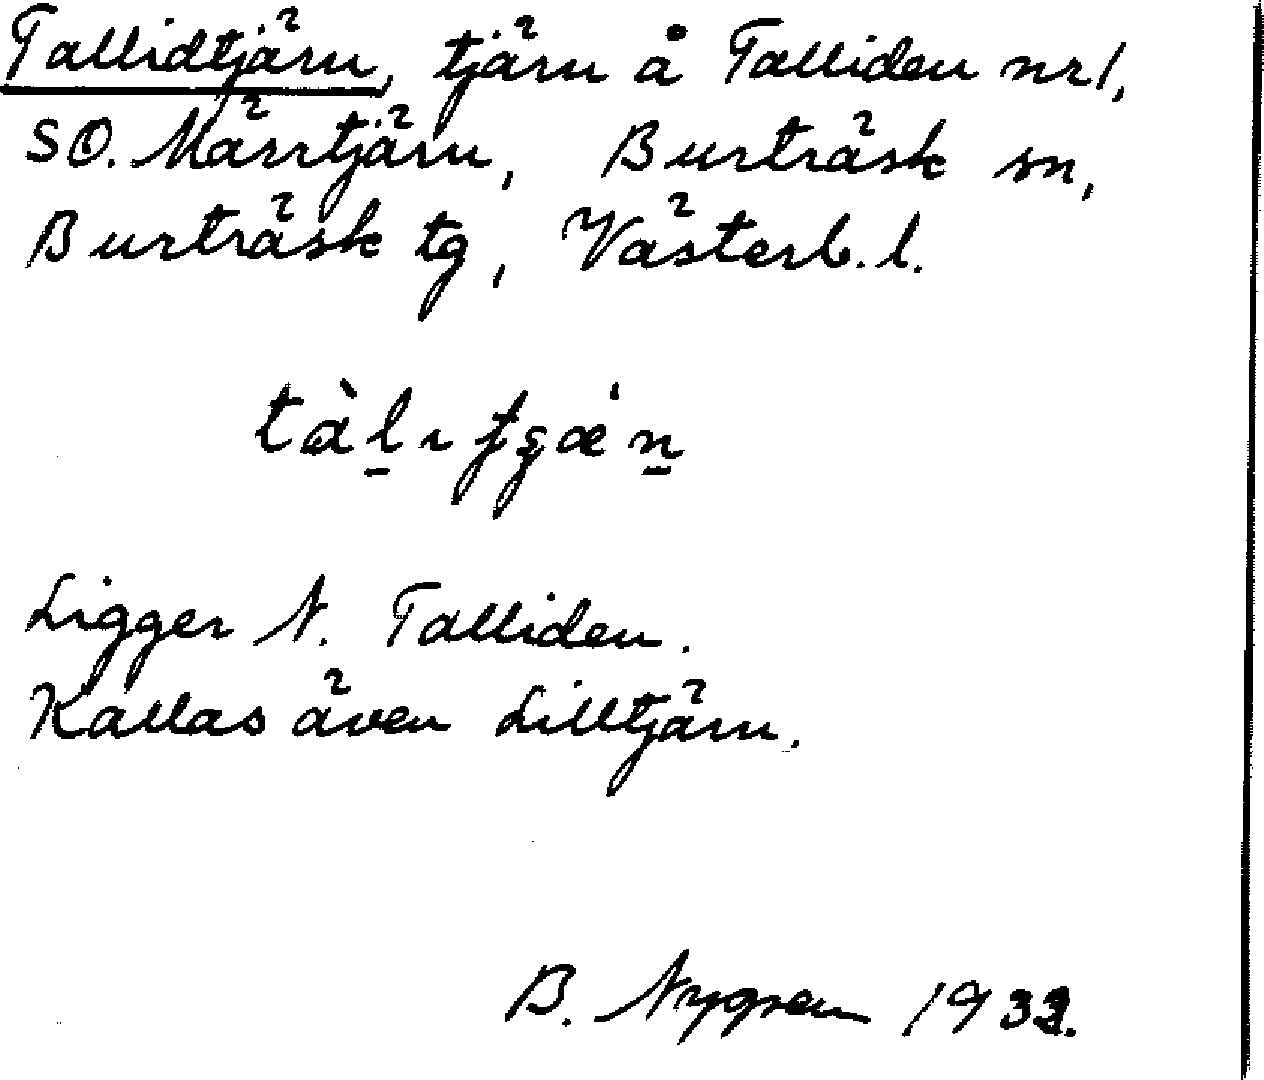 Tallidtjärn, tjärn å Talliden nr 1,
SO. Märrtjärn, Burträsk sn,
Burträsk tg, Västerb. l.
Ligger N. Talliden.
Kallas även Lilltjärn.
B. Nygren